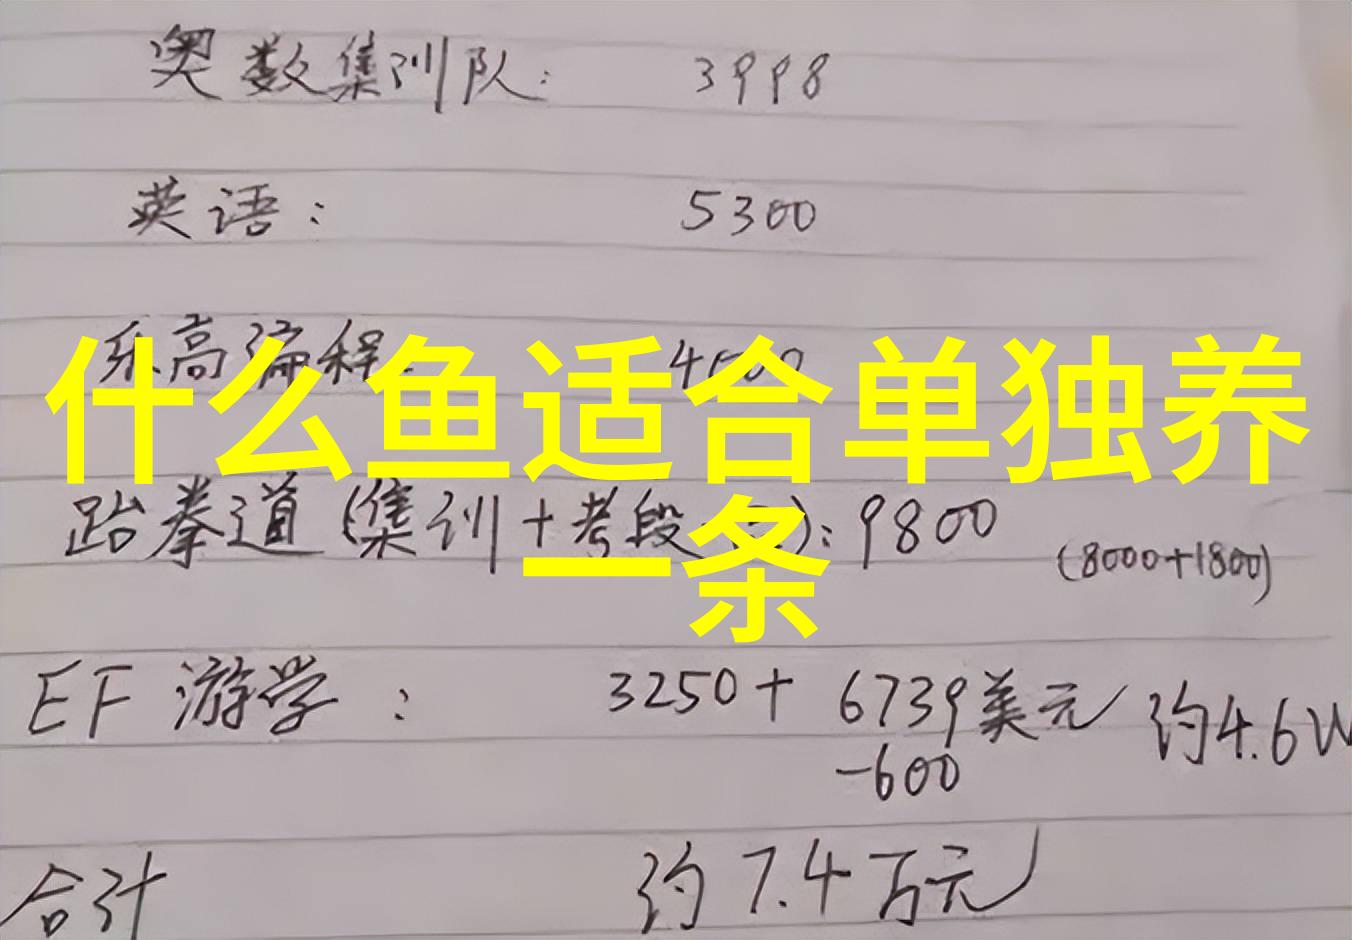 奥数集训队: 3998
英语: 5300
乐高编程: 4100
什么鱼适合单独养
跆拳道(集训+考段 ): 9800 (8000+1800)
一条
EF 游学: 3250+ 6739美元 约4.6W
-600
合计 约7.4万元